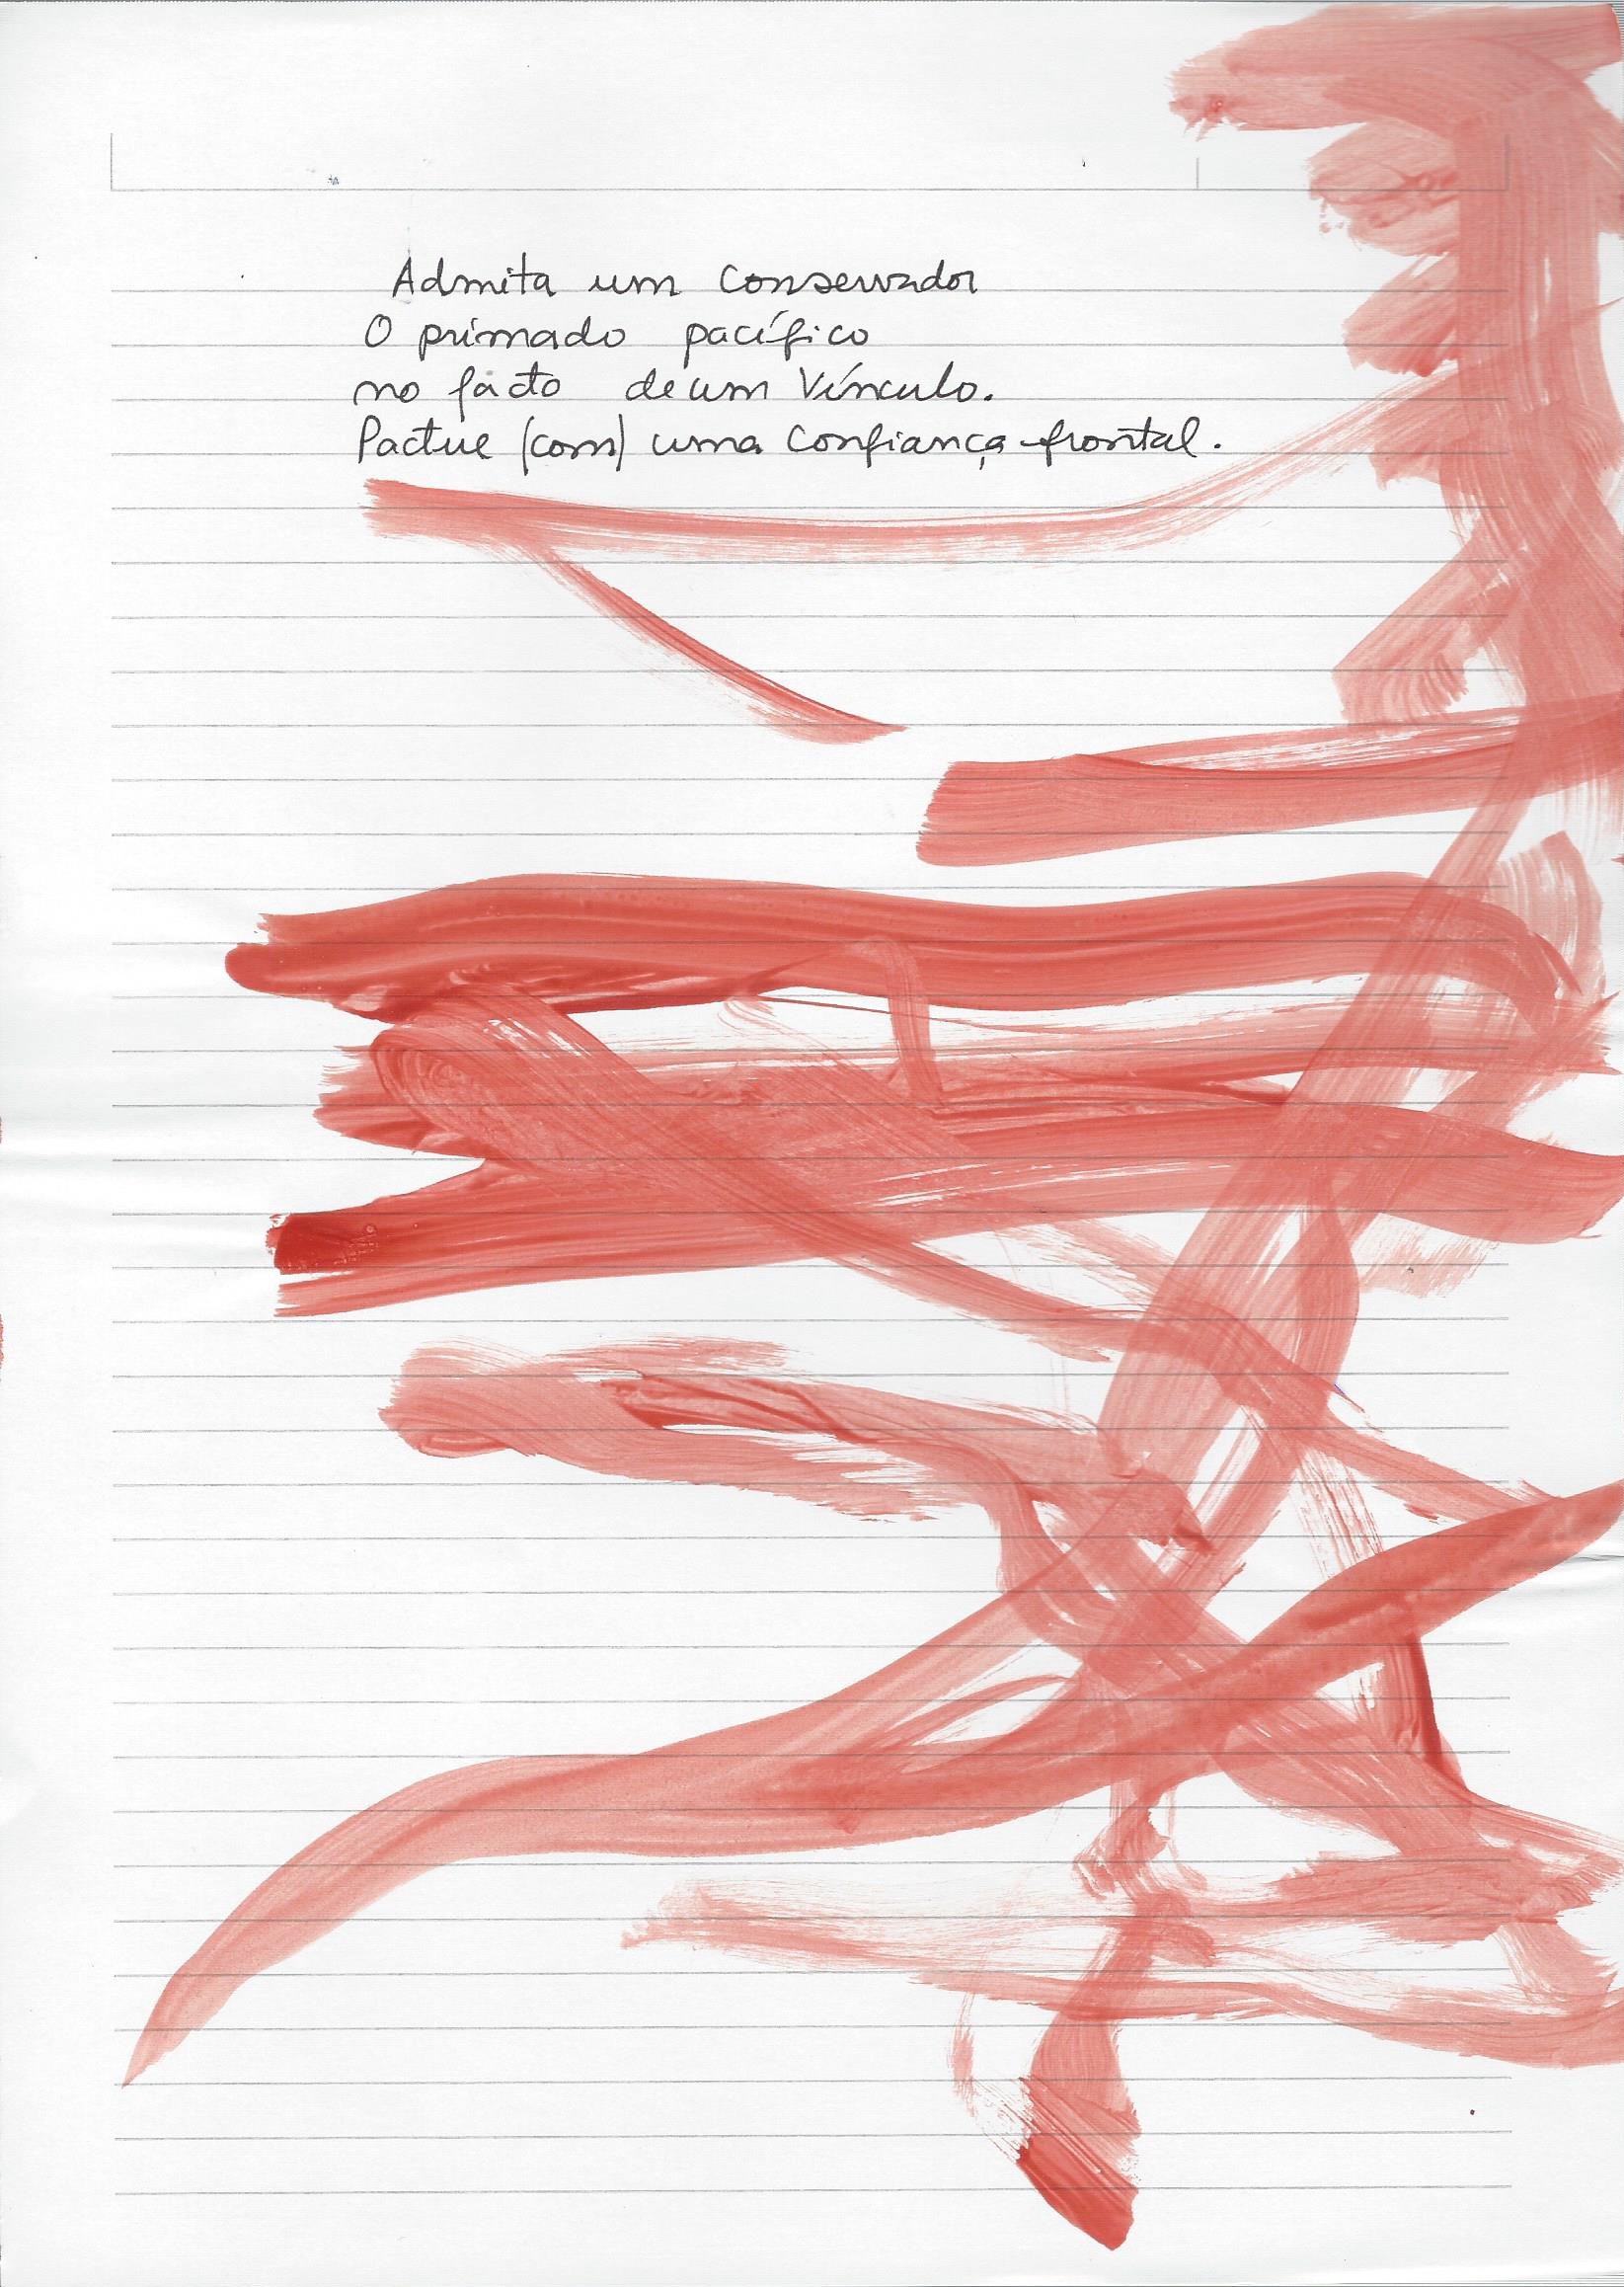 Admita um Conservador
O primado pacífico
no facto de um Vínculo.
Pactue (com) uma Confiança frontal.